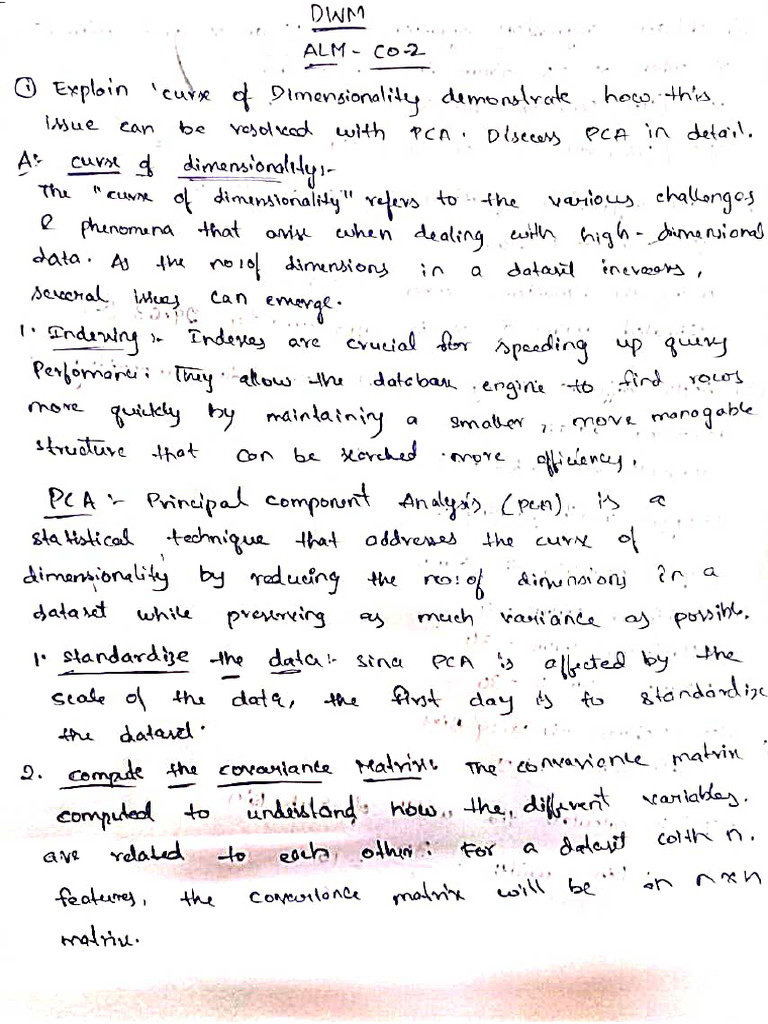 DWM
ALM - CO-2
① Explain 'curse of Dimensionality demonstrate how this
issue can be resolved with PCA. Discess PCA in detail.
A:- curse of dimensionality:-
The "curse of dimensionality" refers to the various challenges
& phenomena that arise when dealing with high-dimensional
data. As the no:of dimensions in a dataset increases,
several issues can emerge.
1. Indexing :- Indexes are crucial for speeding up query
Perfomance. They allow the database engine to find rows
more quickly by maintaining a smaller, more managable
structure that can be searched more efficiency.
PCA :- Principal component Analysis (PCA) is a
statistical technique that addresses the curse of
dimensionality by reducing the no:of dimensions in a
dataset while preserving as much variance as possible.
1. standardize the data:- Since PCA is affected by the
scale of the data, the first day is to standardize
the dataset.
2. compute the covariance Matrix: The convariance matrix
computed to understand how the different variables.
are related to each other. For a dataset with n.
features, the covariance matrix will be an n x n
matrix.